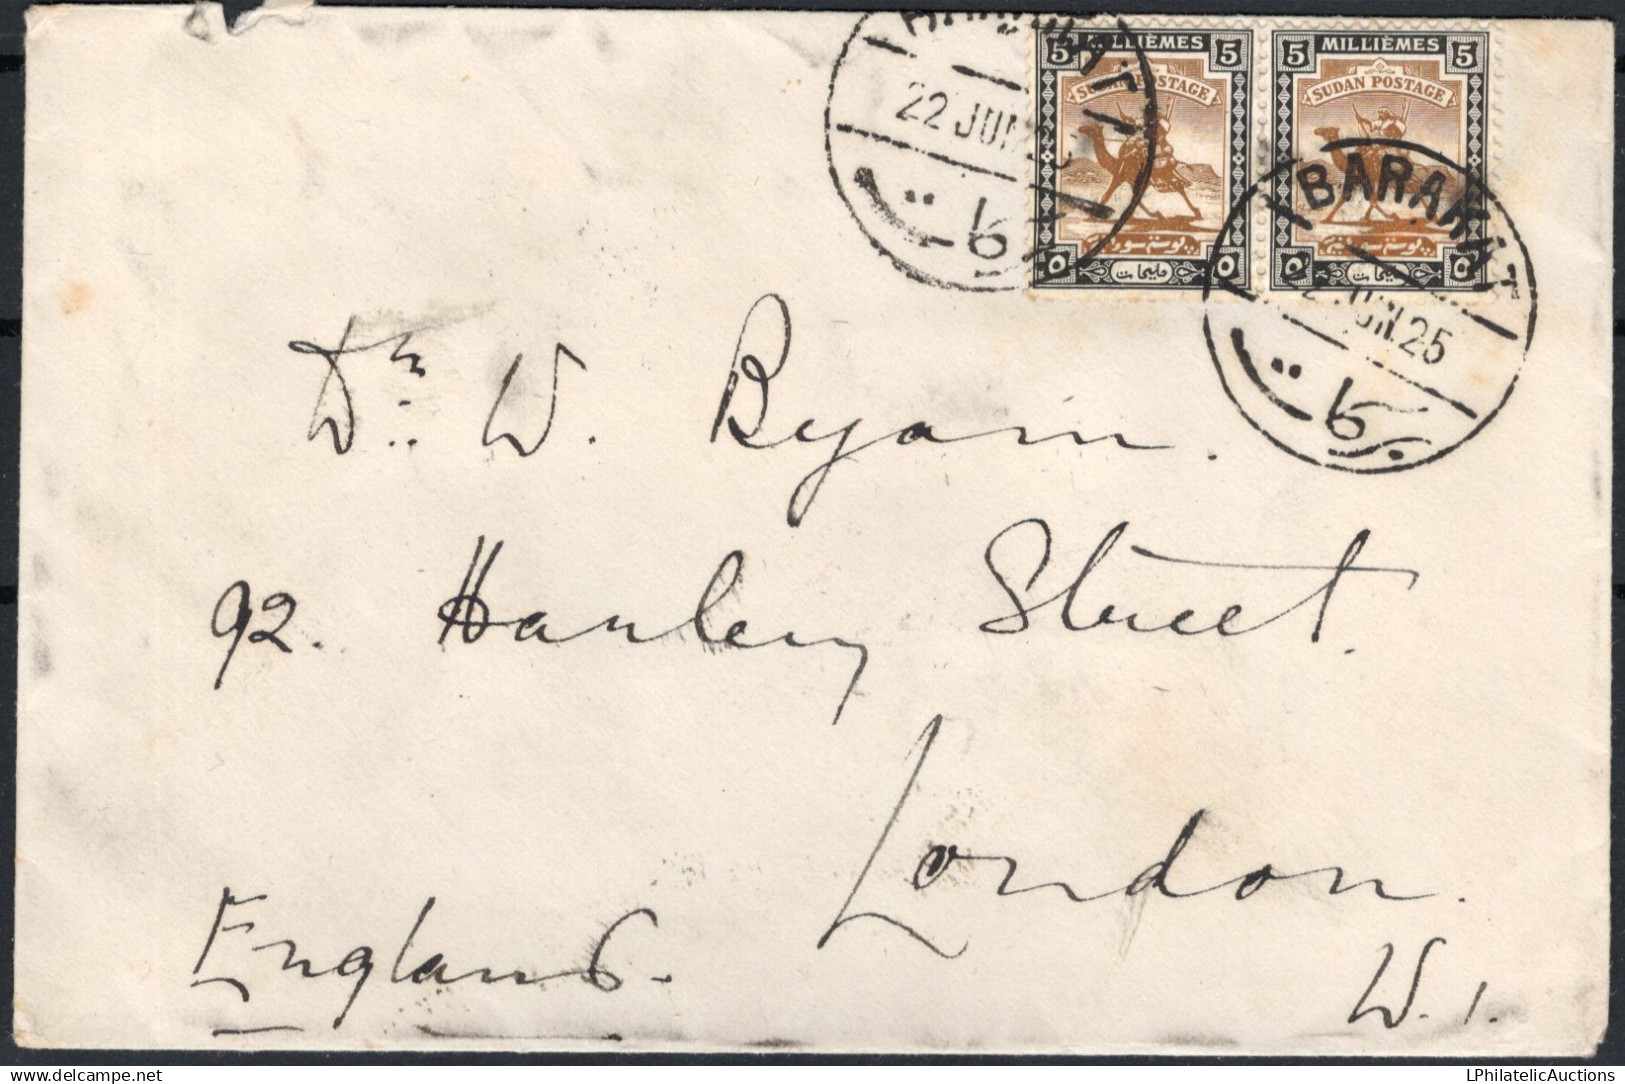 BARAKAT
22 JUN 25
بركات
5 MILLIÈMES 5
SUDAN POSTAGE
بوستة سودانية
٥ مليمات ٥
5 MILLIÈMES 5
SUDAN POSTAGE
بوستة سودانية
٥ مليمات ٥
BARAKAT
22 JUN 25
بركات
Dr. W. Byam.
92. Harley Street.
London.
England.
W. 1.
LPhilatelicAuctions